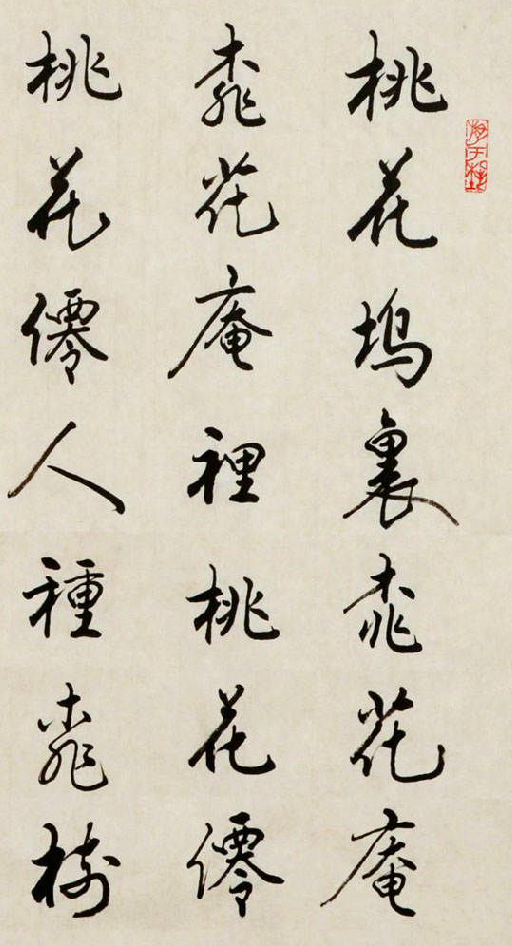 桃花塢裏桃花庵
桃花庵裡桃花僊
桃花僊人種桃樹